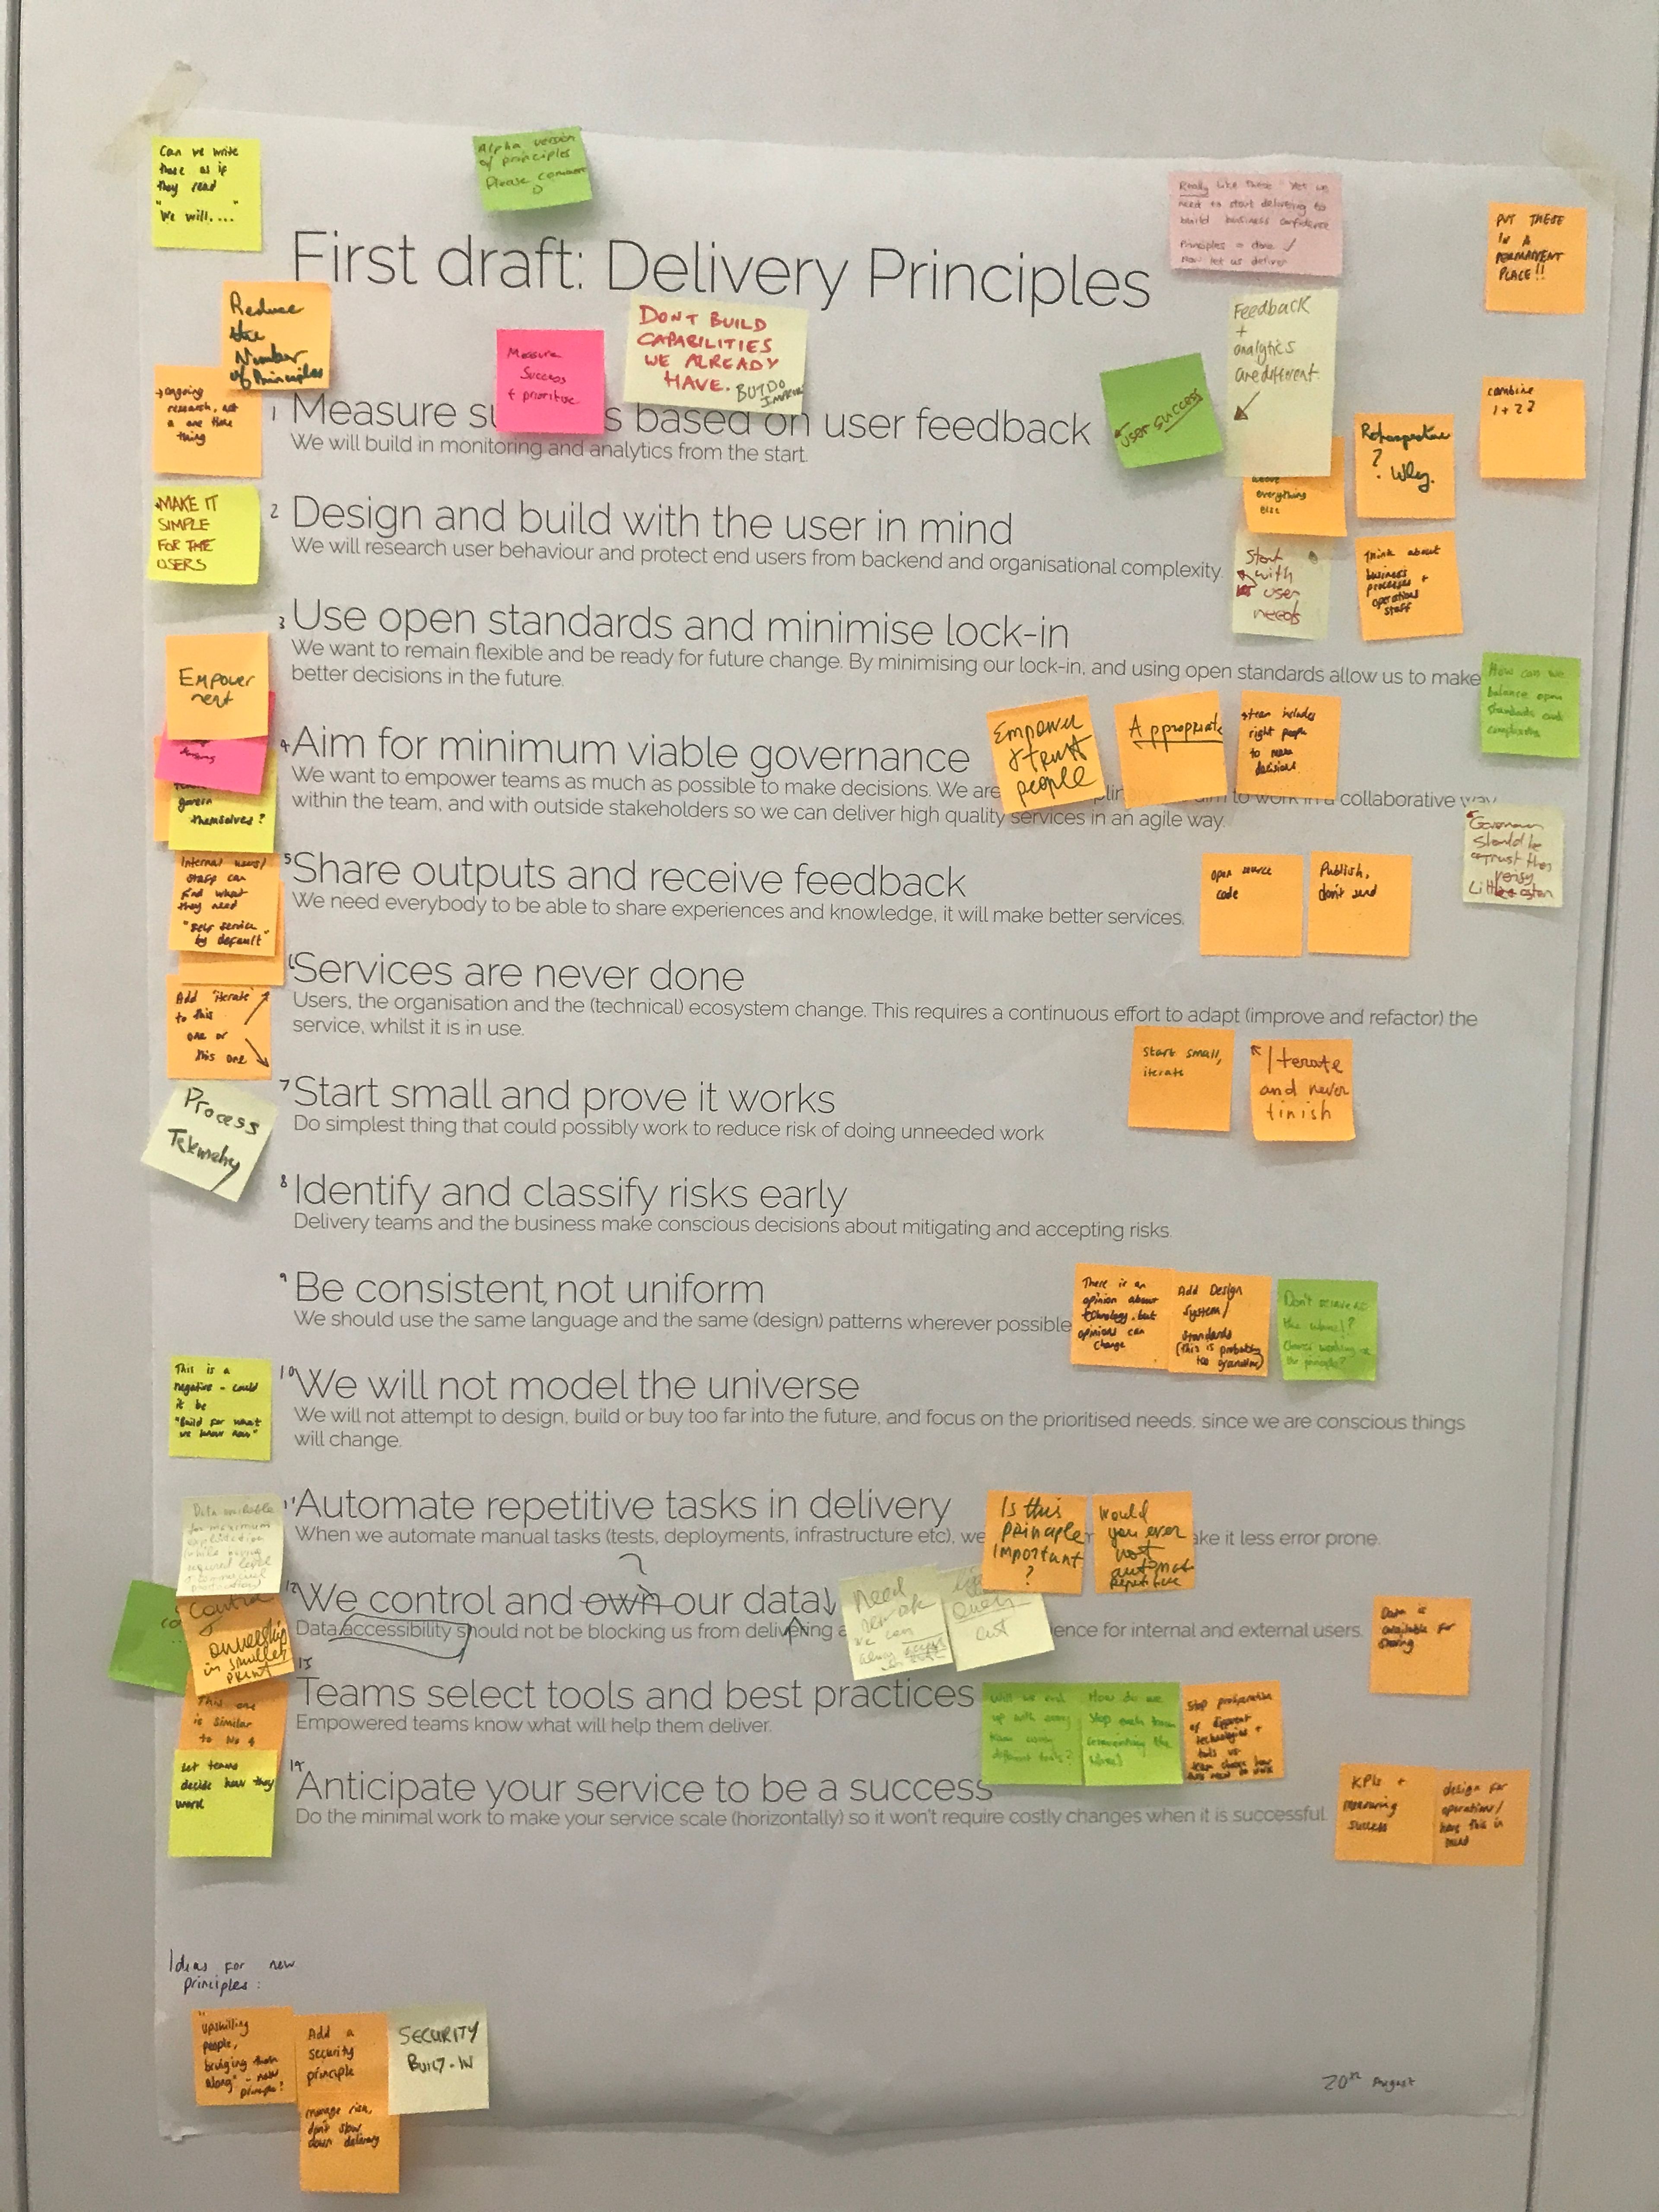 Can we write
these as if
they read
"We will...."
Alpha version
of principles
Please comment
Really like these Yet we
need to start delivering to
build business confidence
Principles = done ✓
Now let us deliver
PUT THESE
IN A
PERMANENT
PLACE!!
First draft: Delivery Principles
Reduce
the
Number
of Principles
Measure
Success
+ prioritise
DONT BUILD
CAPABILITIES
WE ALREADY
HAVE. BUT DO
Feedback
+
analytics
are different.
user success
combine
1+2?
Retrospective
? Why.
→ ongoing
research, not
a one time
thing
1 Measure su s based on user feedback
We will build in monitoring and analytics from the start.
above
everything
else
MAKE IT
SIMPLE
FOR THE
USERS
2 Design and build with the user in mind
We will research user behaviour and protect end users from backend and organisational complexity.
Start
with
user
needs
Think about
business
processes +
operations
staff
3 Use open standards and minimise lock-in
We want to remain flexible and be ready for future change. By minimising our lock-in, and using open standards allow us to make
better decisions in the future.
How can we
balance open
standards and
complexity
Empower
ment
4 Aim for minimum viable governance
We want to empower teams as much as possible to make decisions. We are plin to work in a collaborative way
within the team, and with outside stakeholders so we can deliver high quality services in an agile way.
Empower
& trust
people
Appropriate
steam includes
right people
to make
decisions
govern
themselves?
should be
Trust
5 Share outputs and receive feedback
We need everybody to be able to share experiences and knowledge, it will make better services.
open source
code
Publish,
don't send
Internal users/
staff can
find what
they need
"self service
by default"
6 Services are never done
Users, the organisation and the (technical) ecosystem change. This requires a continuous effort to adapt (improve and refactor) the
service, whilst it is in use.
Add "iterate"
to this
one or
this one
Start small,
iterate
Iterate
and never
finish
7 Start small and prove it works
Do simplest thing that could possibly work to reduce risk of doing unneeded work
Process
Telemetry
8 Identify and classify risks early
Delivery teams and the business make conscious decisions about mitigating and accepting risks.
9 Be consistent, not uniform
We should use the same language and the same (design) patterns wherever possible
There is an
opinion about
technology, but
opinions can
change
Add Design
System/
standards
(this is probably
too granular)
Don't
the wheel?
the principle?
This is a
negative - could
it be
"Build for what
we know now"
10 We will not model the universe
We will not attempt to design, build or buy too far into the future, and focus on the prioritised needs, since we are conscious things
will change.
11 Automate repetitive tasks in delivery
When we automate manual tasks (tests, deployments, infrastructure etc), we ake it less error prone.
Is this
principle
important
?
Would
you ever
not
automate
repetitive
Data available
for maximum
exploitation
while
required level
?
12 We control and own our data
Data accessibility should not be blocking us from delivering a ence for internal and external users.
Need
we can
always access
Query
cost
Data is
available for
sharing
Control
ownership
in smaller
print
13 Teams select tools and best practices
Empowered teams know what will help them deliver.
This one
is similar
to No 4
Will we end
up with every
team using
different tools?
How do we
stop each team
reinventing the
wheel
Stop proliferation
of different
technologies +
tools vs
Let teams
decide how they
work
14 Anticipate your service to be a success
Do the minimal work to make your service scale (horizontally) so it won't require costly changes when it is successful.
KPIs +
measuring
success
design for
operations/
have this in
mind
Ideas for new
principles:
"upskilling
people,
bringing them
along" - new
principle?
Add a
security
principle
SECURITY
BUILT-IN
manage risk,
don't slow
down delivery
20th August